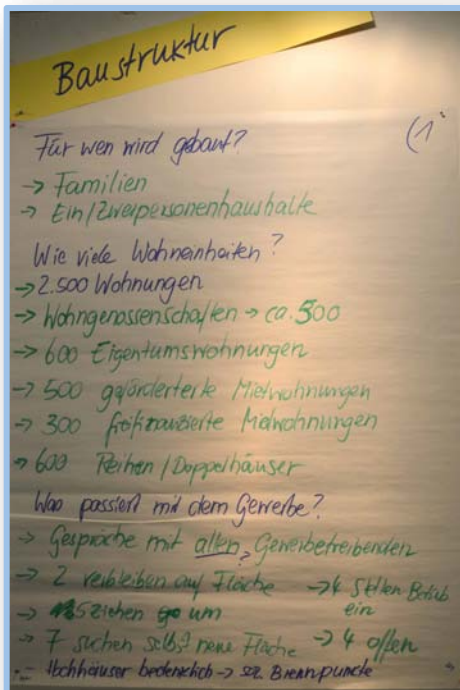 Baustruktur
(1
Für wen wird gebaut?
→ Familien
→ Ein/Zweipersonenhaushalte
Wie viele Wohneinheiten?
→ 2.500 Wohnungen
→ Wohngenossenschaften → ca. 500
→ 600 Eigentumswohnungen
→ 500 geförderterte Mietwohnungen
→ 300 freifinanzierte Mietwohnungen
→ 600 Reihen/Doppelhäuser
Was passiert mit dem Gewerbe?
→ Gespräche mit allen Gewerbetreibenden
→ 2 verbleiben auf Fläche → 4 stellen Betrieb
ein
→ 5 ziehen um
→ 7 suchen selbst neue Fläche → 4 offen
- Hochhäuser bedenklich → soz. Brennpunkte